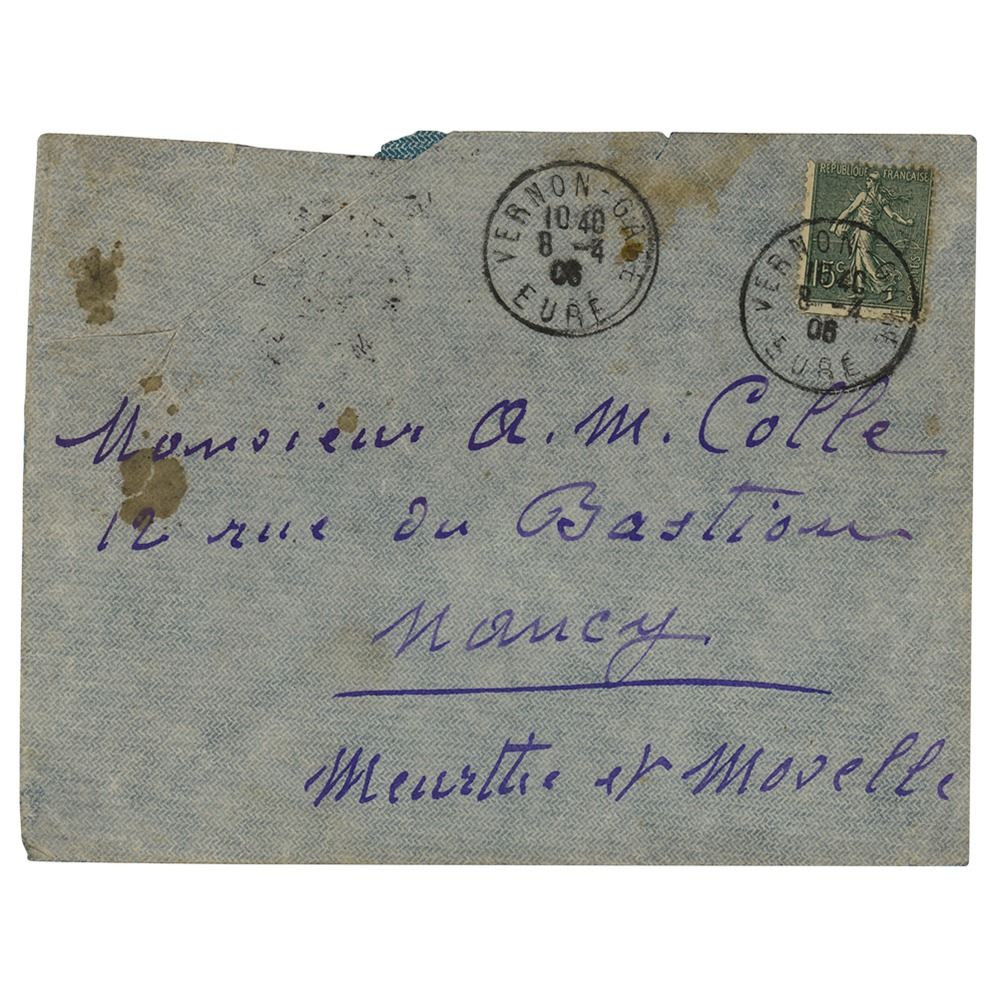 VERNON-GARE
10 40
8 -4
06
EURE
REPUBLIQUE FRANÇAISE
15c
VERNON-GARE
10 40
8 -4
06
EURE
Monsieur A. M. Colle
12 rue du Bastion
Nancy
Meurthe et Moselle